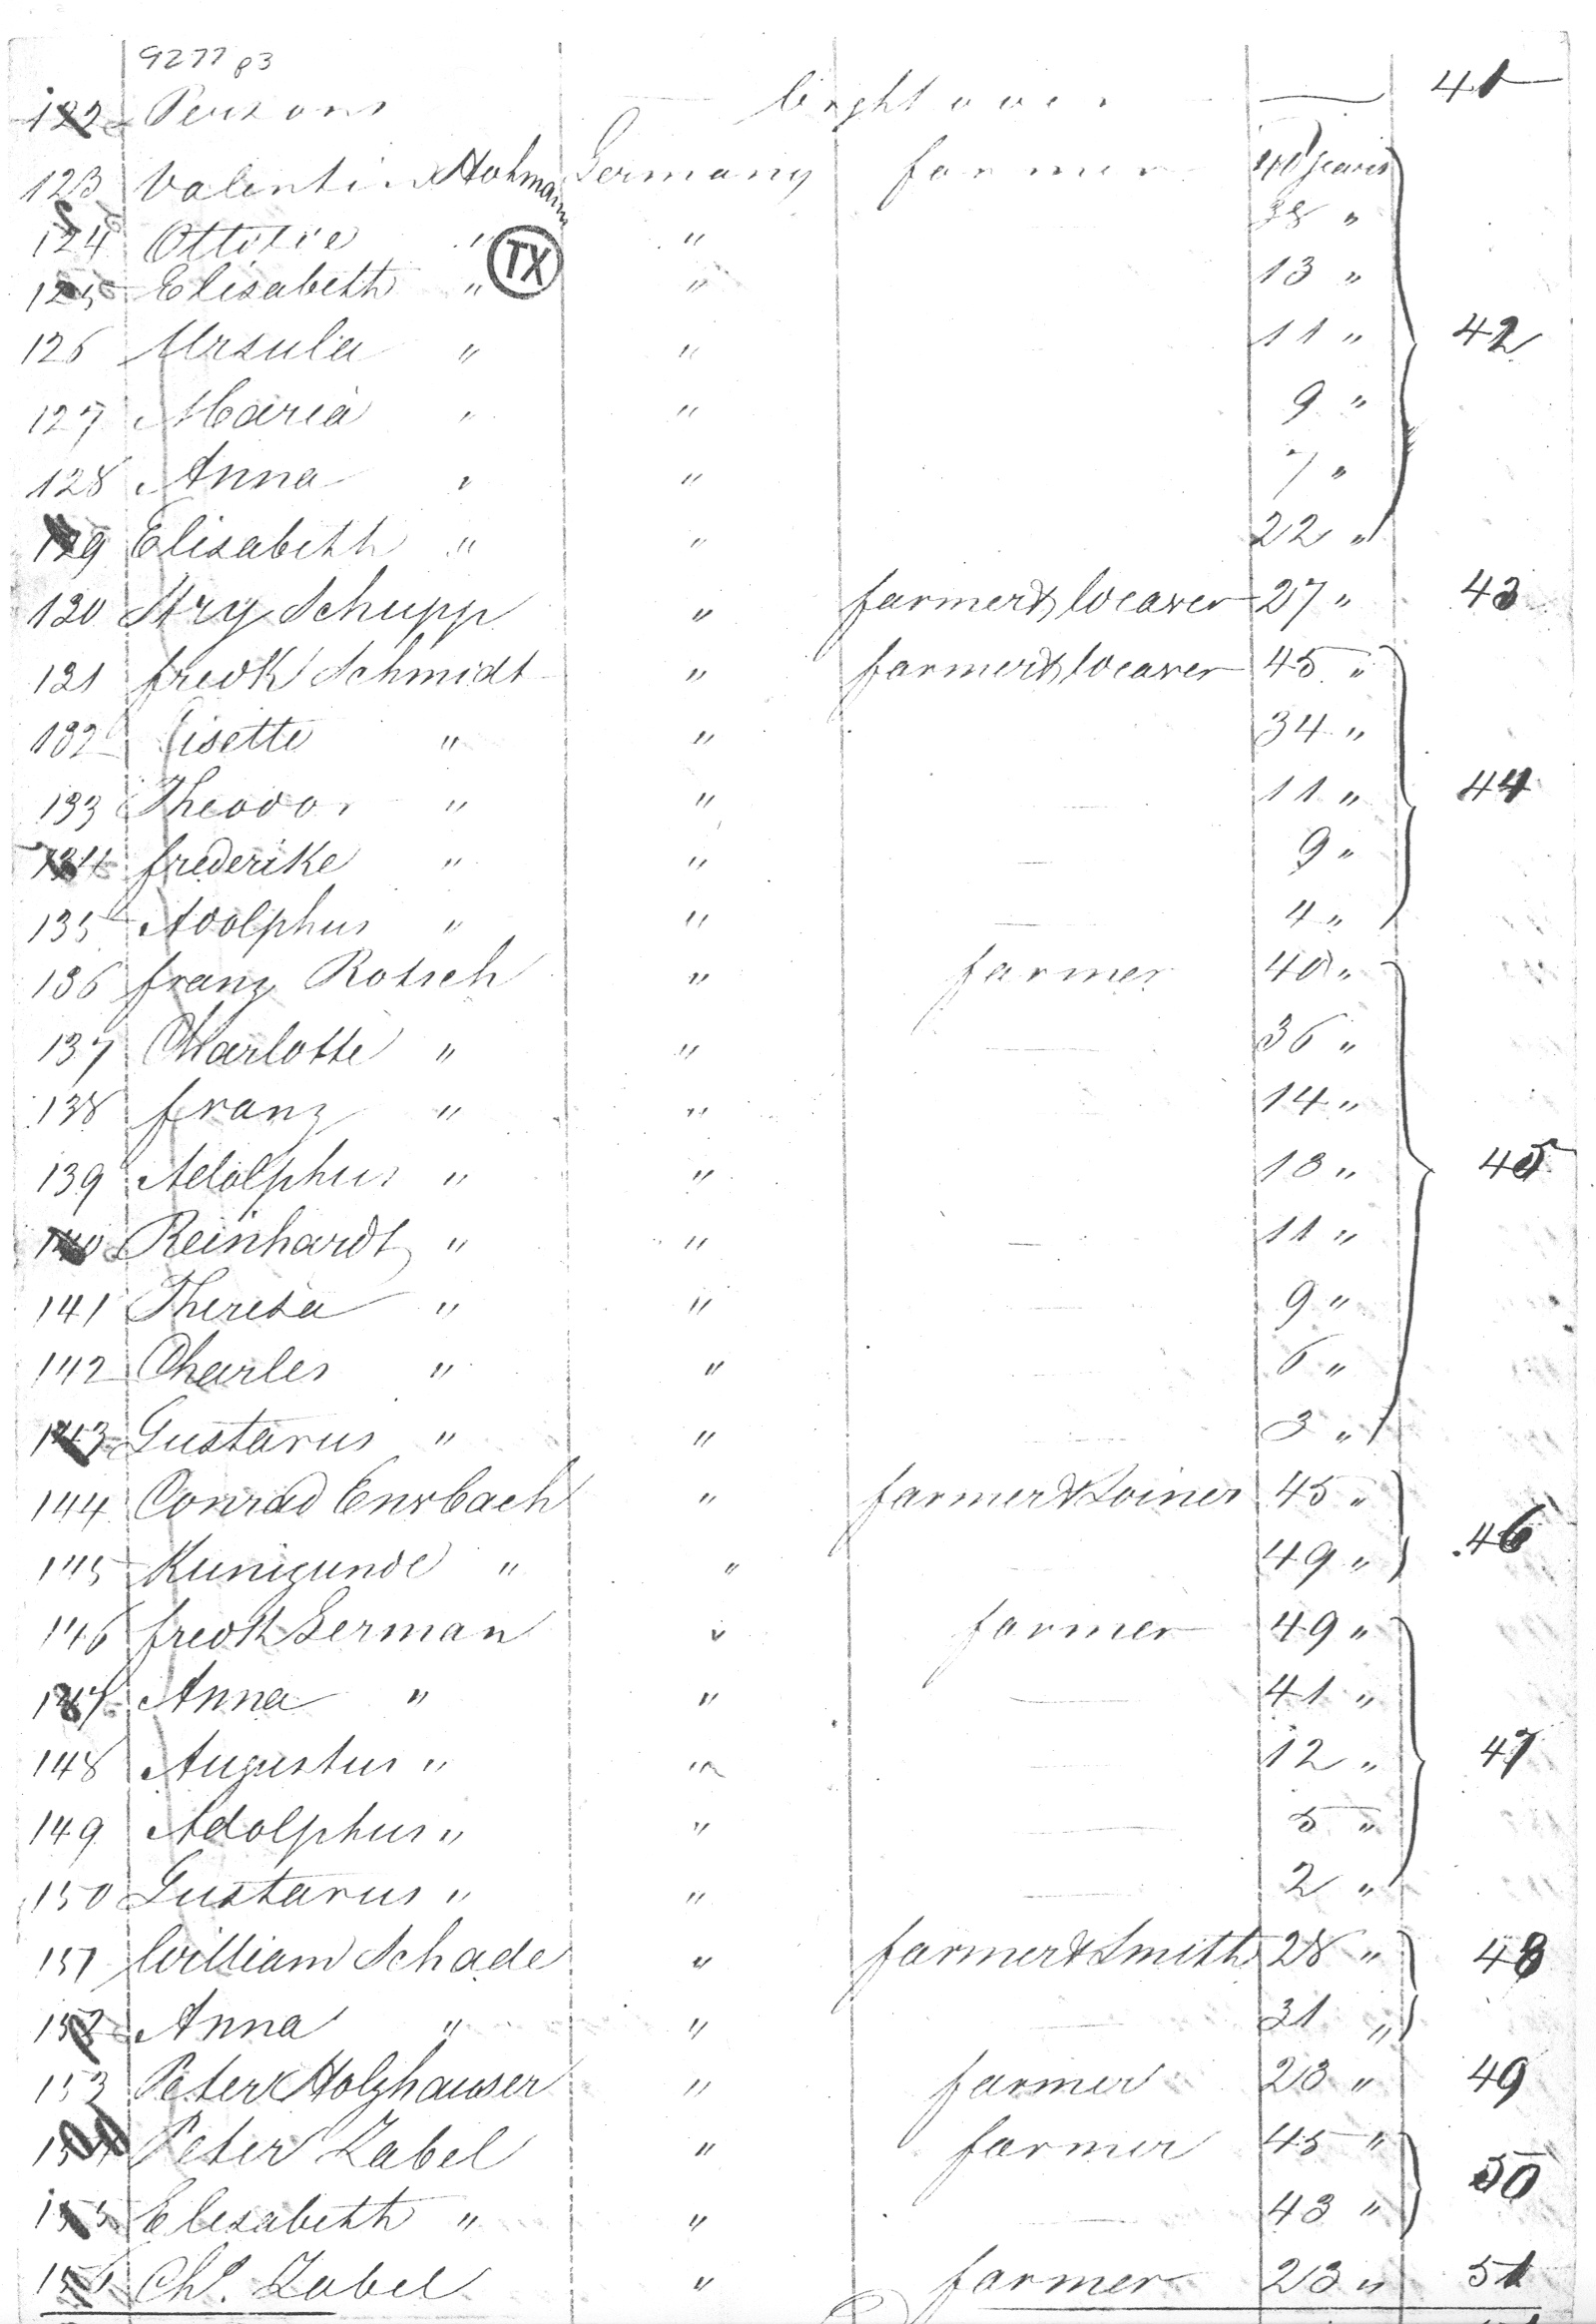 9277 p3
122 Persons bright over 41
123 Valentin Hohmann Germany farmer 40 years
124 Ottolie " " 38 "
TX
125 Elisabeth " " 13 "
126 Ursula " " 11 " 42
127 Maria " " 9 "
128 Anna " " 7 "
129 Elisabeth " " 22 "
130 Hry Schupp " farmer & Weaver 27 " 43
131 fredk Schmidt " farmer & Weaver 45 "
132 Lisette " " 34 "
133 Theodor " " 11 " 44
134 frederike " " 9 "
135 Adolphus " " 4 "
136 franz Rotsch " farmer 40 "
137 Charlotte " " 36 "
138 franz " " 14 "
139 Adolphus " " 13 " 45
140 Reinhardt " " 11 "
141 Theresa " " 9 "
142 Charles " " 6 "
143 Gustavus " " 3 "
144 Conrad " farmer & Joiner 45 " 46
145 Kunigunde " " 49 "
146 fredk German " farmer 49 "
147 Anna " " 41 "
148 Augustus " " 12 " 47
149 Adolphus " " 5 "
150 Gustavus " " 2 "
151 William Schade " farmer & Smith 28 " 48
152 Anna " " 31 "
153 Peter Holzhauser " farmer 23 " 49
154 Peter Zabel " farmer 45 " 50
155 Elesabeth " " 43 "
156 Chs. Zabel " farmer 23 " 51